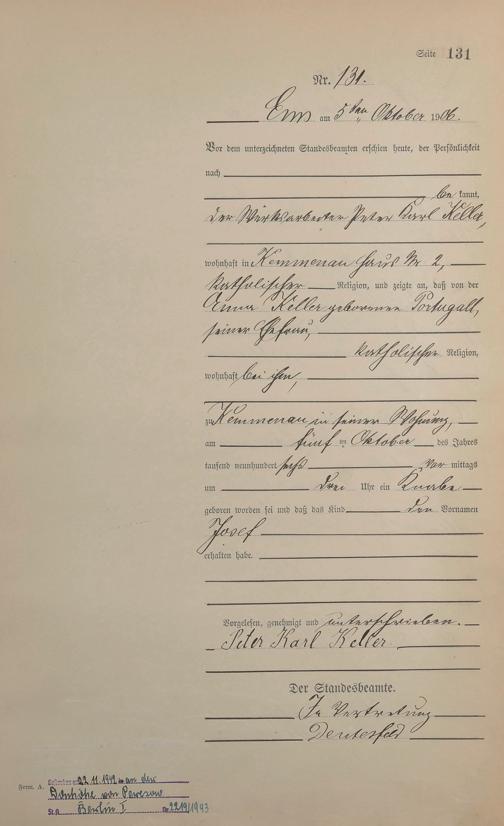 Seite 131
Nr. 131.
Ems am 5ten Oktober 1906.
Vor dem unterzeichneten Standesbeamten erschien heute, der Persönlichkeit
nach
be kannt,
der Werksarbeiter Peter Karl Keller,
wohnhaft in Kemmenau Haus Nr 2,
katholischer Religion, und zeigte an, daß von der
Anna Keller geborenen Portugall,
seiner Ehefrau,
katholischer Religion,
wohnhaft bei ihm,
zu Kemmenau in seiner Wohnung,
am fünf ten Oktober des Jahres
tausend neunhundert sechs Vor mittags
um drei Uhr ein Knabe
geboren worden sei und daß das Kind den Vornamen
Josef
erhalten habe.
Vorgelesen, genehmigt und unterschrieben.
Peter Karl Keller
Der Standesbeamte.
In Vertretung
22.11.1942 in an der
von
Form. A.
St.A. Berlin I 2219/1943